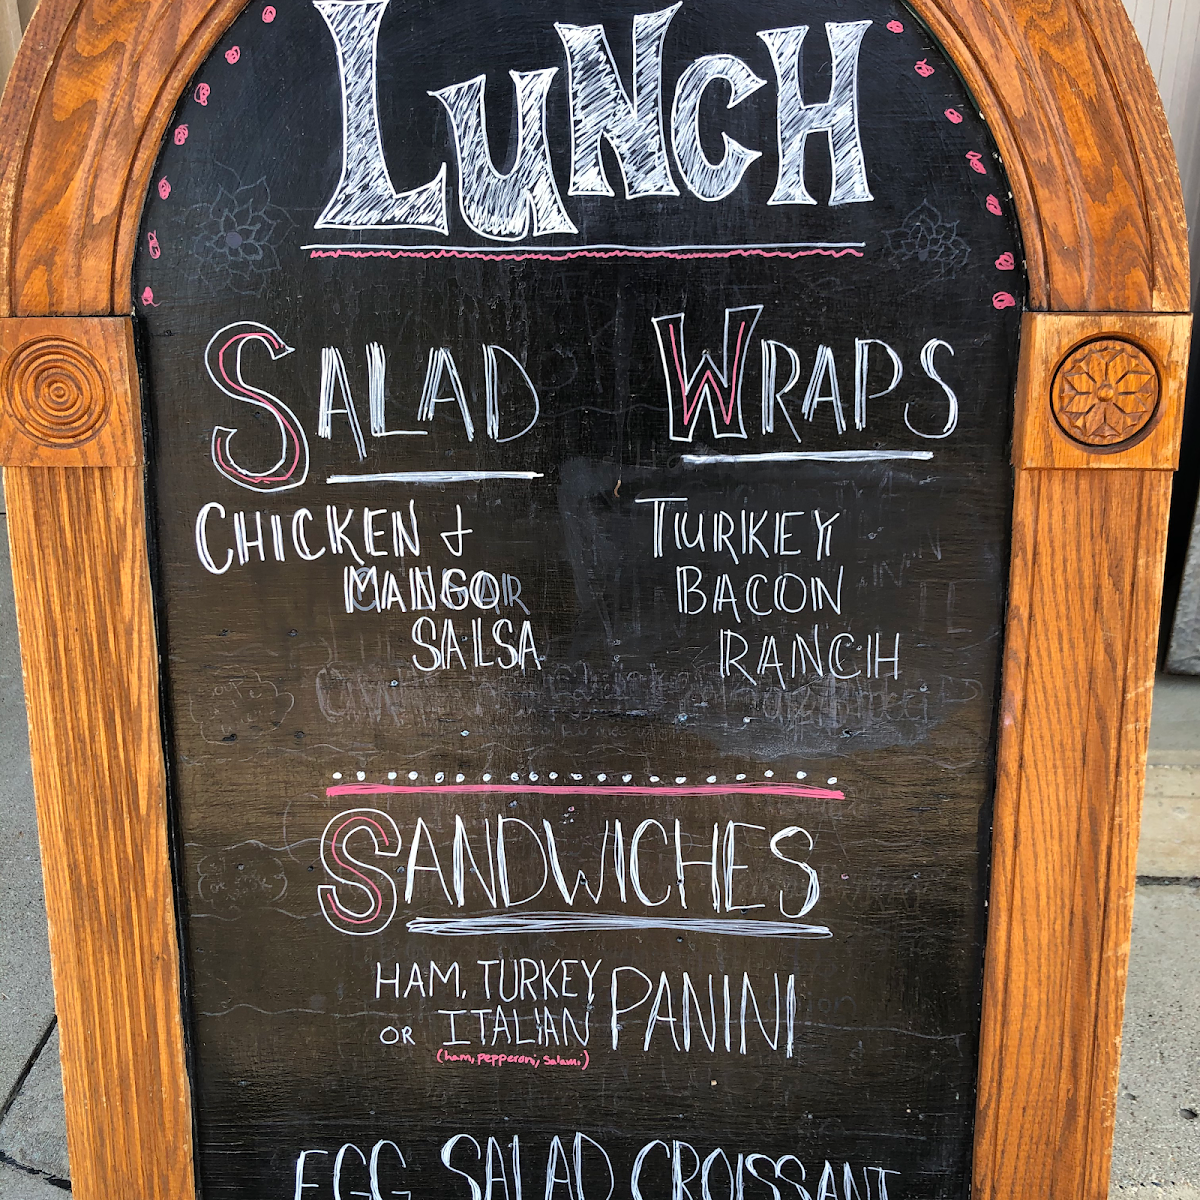 LUNCH
SALAD
CHICKEN &
MANGO
SALSA
WRAPS
TURKEY
BACON
RANCH
SANDWICHES
HAM, TURKEY,
OR ITALIAN PANINI
(ham, pepperoni, salami)
EGG SALAD CROISSANT